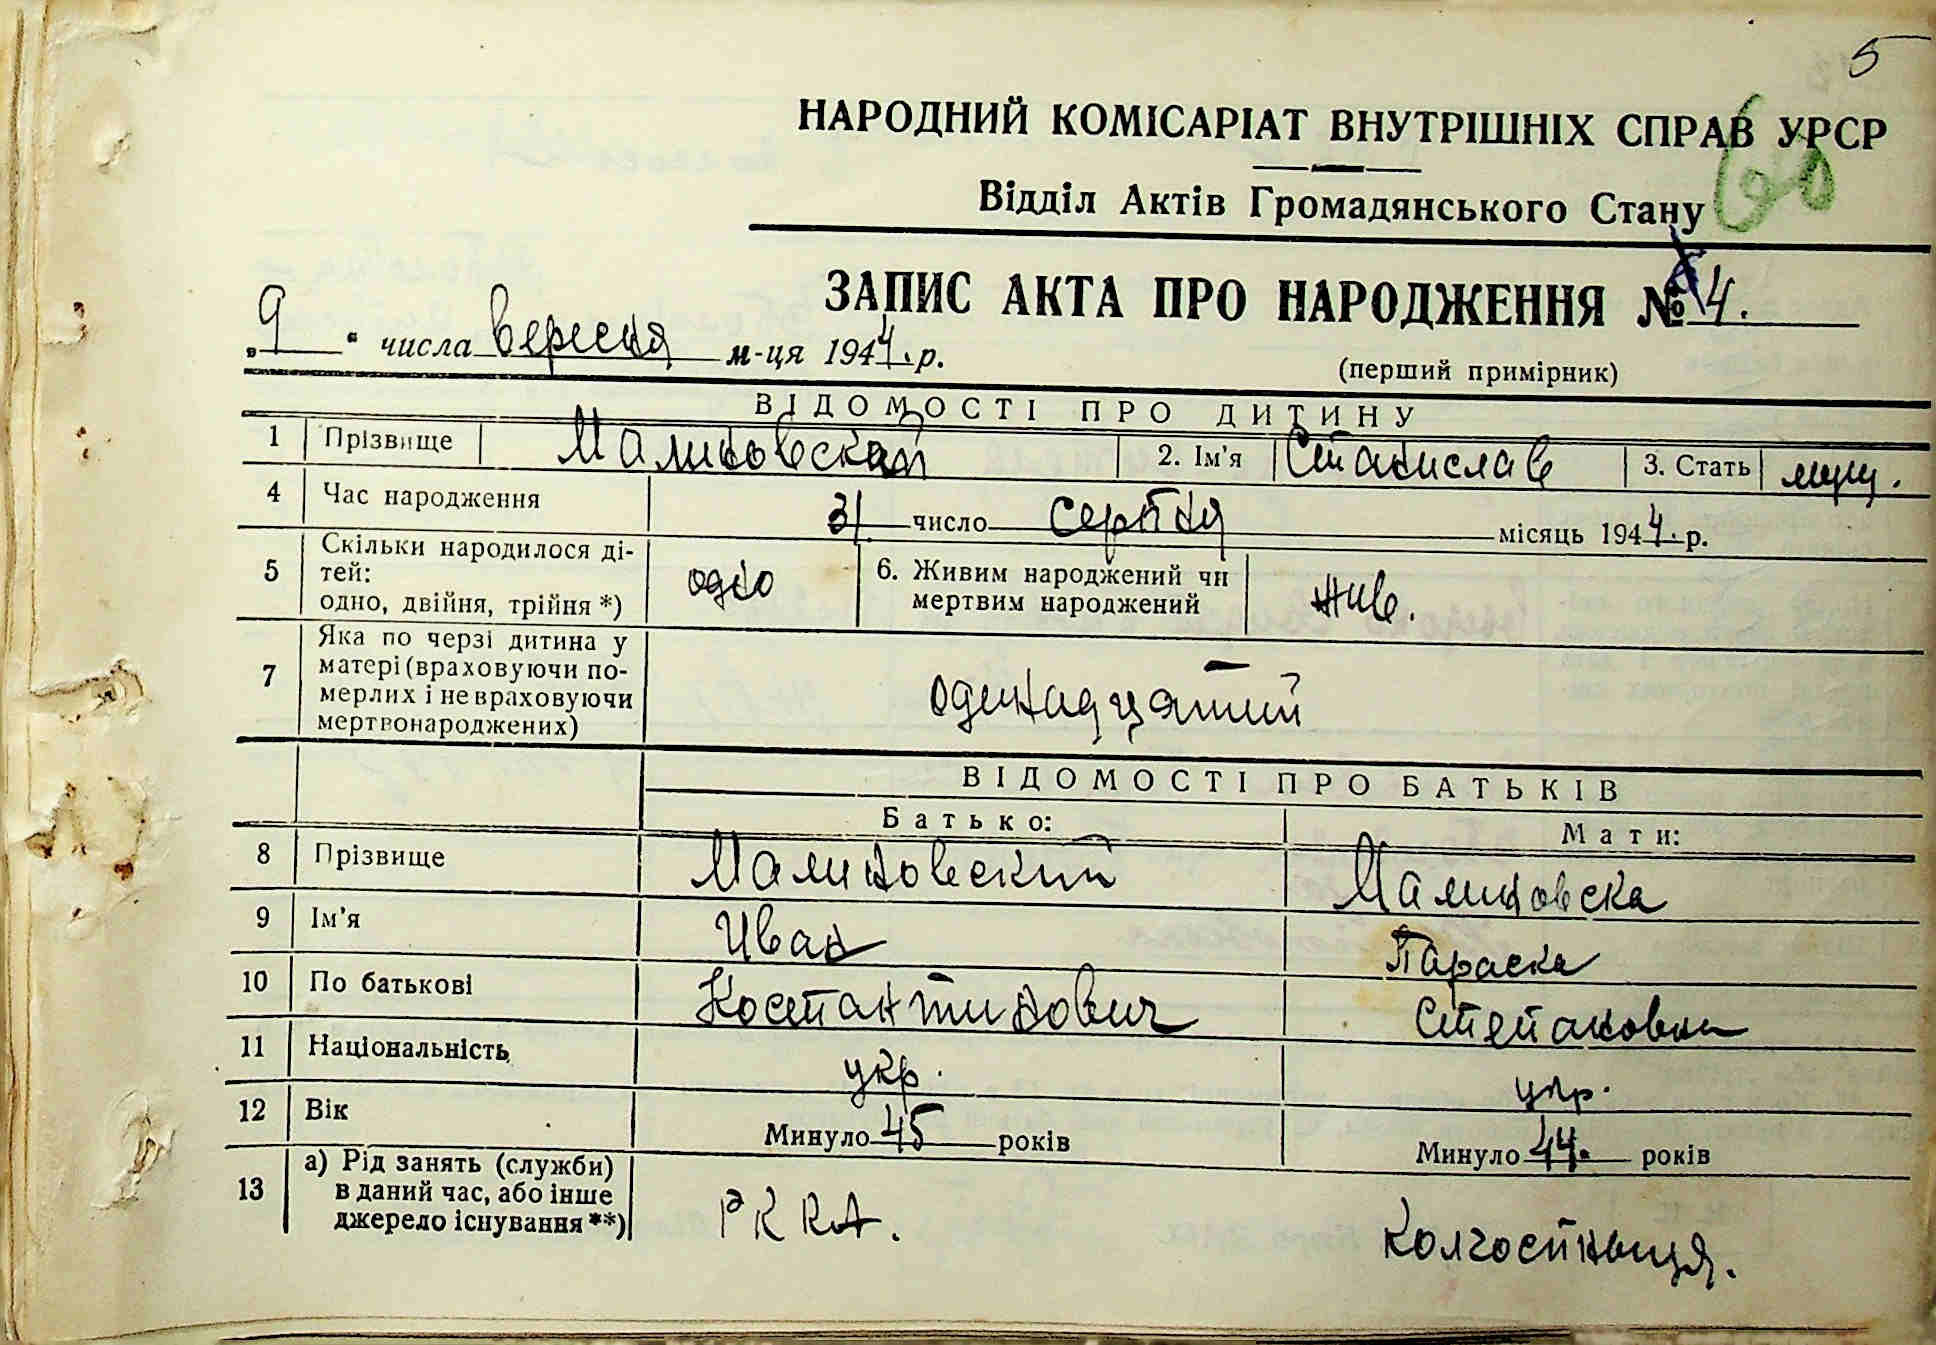 5
НАРОДНИЙ КОМІСАРІАТ ВНУТРІШНІХ СПРАВ УРСР
60
Відділ Актів Громадянського Стану
ЗАПИС АКТА ПРО НАРОДЖЕННЯ № 4.
„9“ числа вересня м-ця 1944. р.
(перший примірник)
ВІДОМОСТІ ПРО ДИТИНУ
1 Прізвище Малиновский 2. Ім'я Станислав 3. Стать муж.
4 Час народження 31 число серпня місяць 1944. р.
5 Скільки народилося ді-
тей:
одно, двійня, трійня *) одно 6. Живим народжений чи
мертвим народжений жив.
7 Яка по черзі дитина у
матері (враховуючи по-
мерлих і не враховуючи
мертвонароджених) одинадцятий
ВІДОМОСТІ ПРО БАТЬКІВ
Батько: Мати:
8 Прізвище Малиновский Малиновска
9 Ім'я Иван Параска
10 По батькові Костантинович Степановна
11 Національність укр. укр.
12 Вік Минуло 45 років Минуло 44. років
13 а) Рід занять (служби)
в даний час, або інше
джерело існування **) РККА. Колгоспниця.